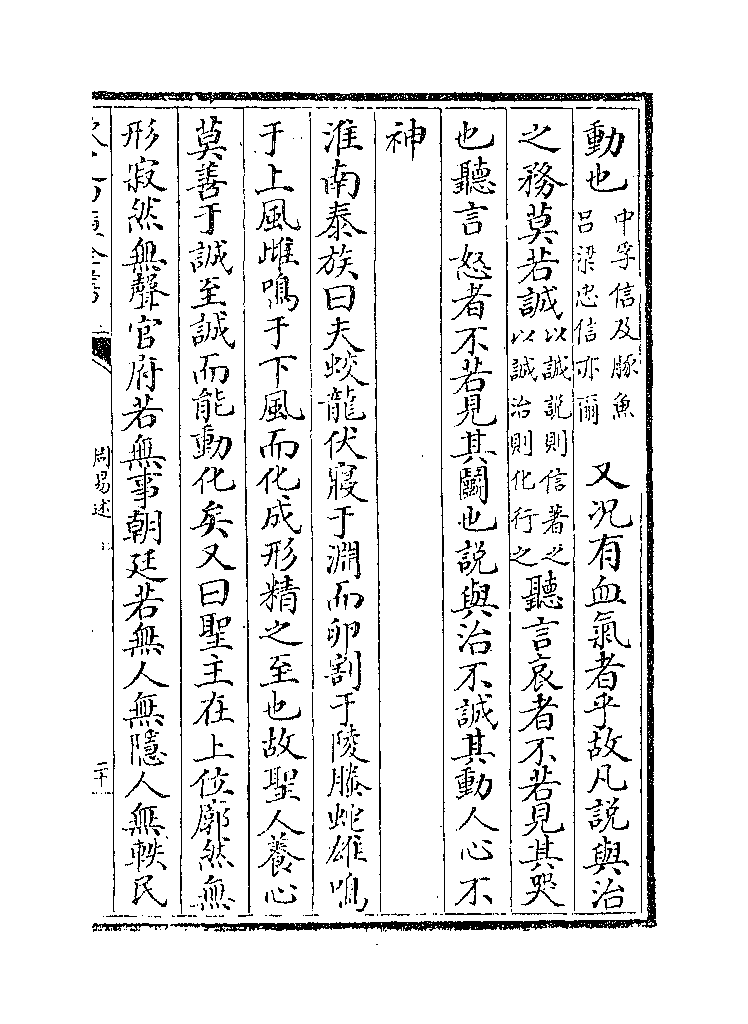 動也中孚信及豚魚吕梁忠信亦爾又况有血氣者乎故凡説與治
之務莫若誠以誠説則信著之以誠治則化行之聽言哀者不若見其哭
也聽言怒者不若見其鬭也説與治不誠其動人心不
神
淮南泰族曰夫蛟龍伏寢于淵而卵割于陵螣蛇雄鳴
于上風雌鳴于下風而化成形精之至也故聖人養心
莫善于誠至誠而能動化矣又曰聖主在上位廓然無
形寂然無聲官府若無事朝廷若無人無隱人無軼民
周易述
二十